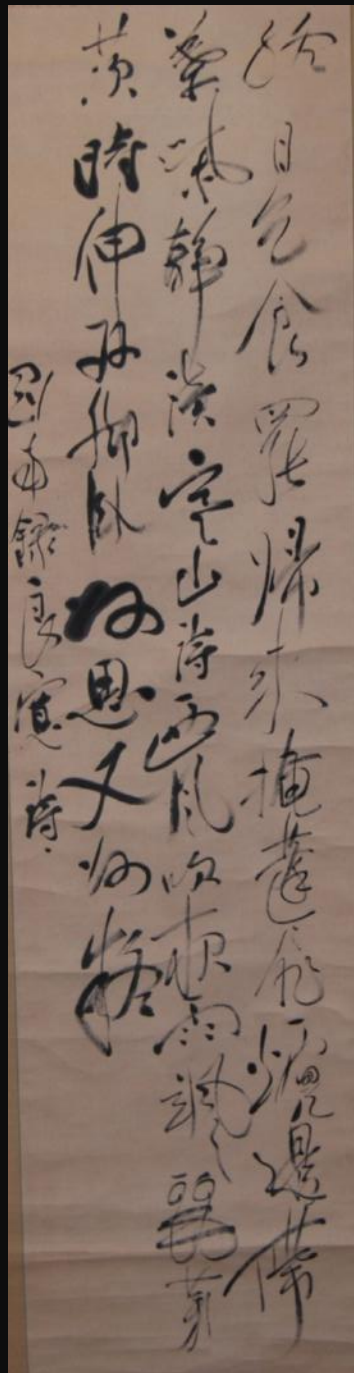 終日乞食罷歸来掩蓬扉爐帶
葉静讀寒山詩西風吹夜雨颯々茅
茨時伸双脚臥何思又何疑
南録良寛詩